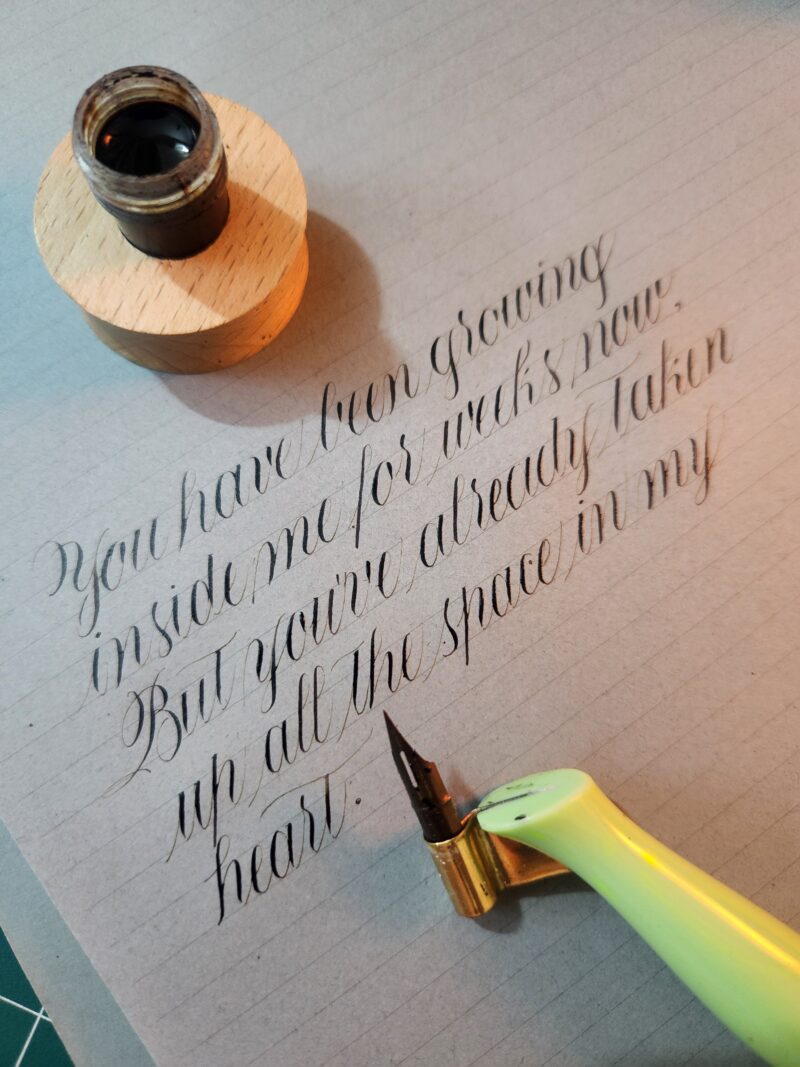 You have been growing
inside me for weeks now,
But you've already taken
up all the space in my
heart.